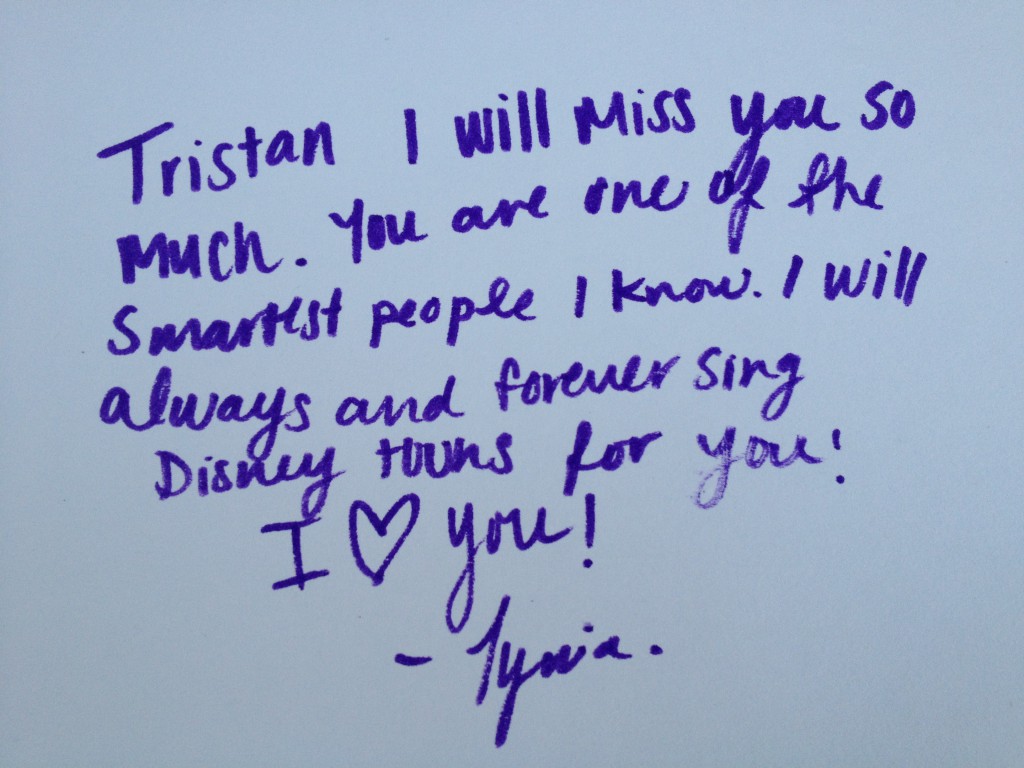 Tristan I will Miss you so
Much. You are one of the
Smartest people I know. I will
always and forever sing
Disney toons for you!
I ♡ you!
-